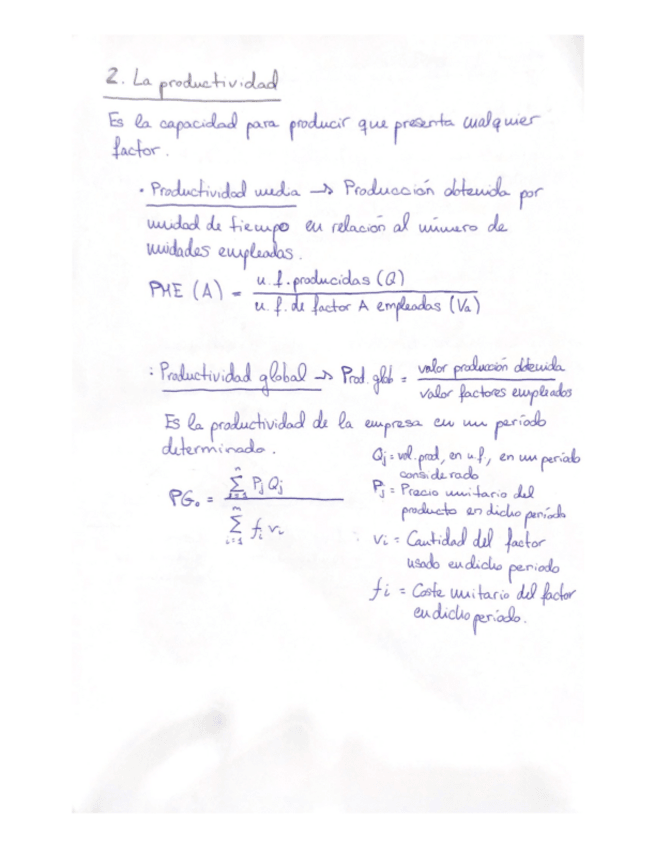 2. La productividad
Es la capacidad para producir que presenta cualquier
factor.
• Productividad media → Producción obtenida por
unidad de tiempo en relación al número de
unidades empleadas.
PME (A) = u.f. producidas (Q) / u.f. de factor A empleadas (Va)
: Productividad global → Prod. glob = valor producción obtenida / valor factores empleados
Es la productividad de la empresa en un período
determinado.
PG₀ = Σ Pj Qj / Σ fi vi
Qj = vol. prod, en u.f, en un período
considerado
Pj = Precio unitario del
producto en dicho período
Vi = Cantidad del factor
usado en dicho periodo
fi = Coste unitario del factor
en dicho período.